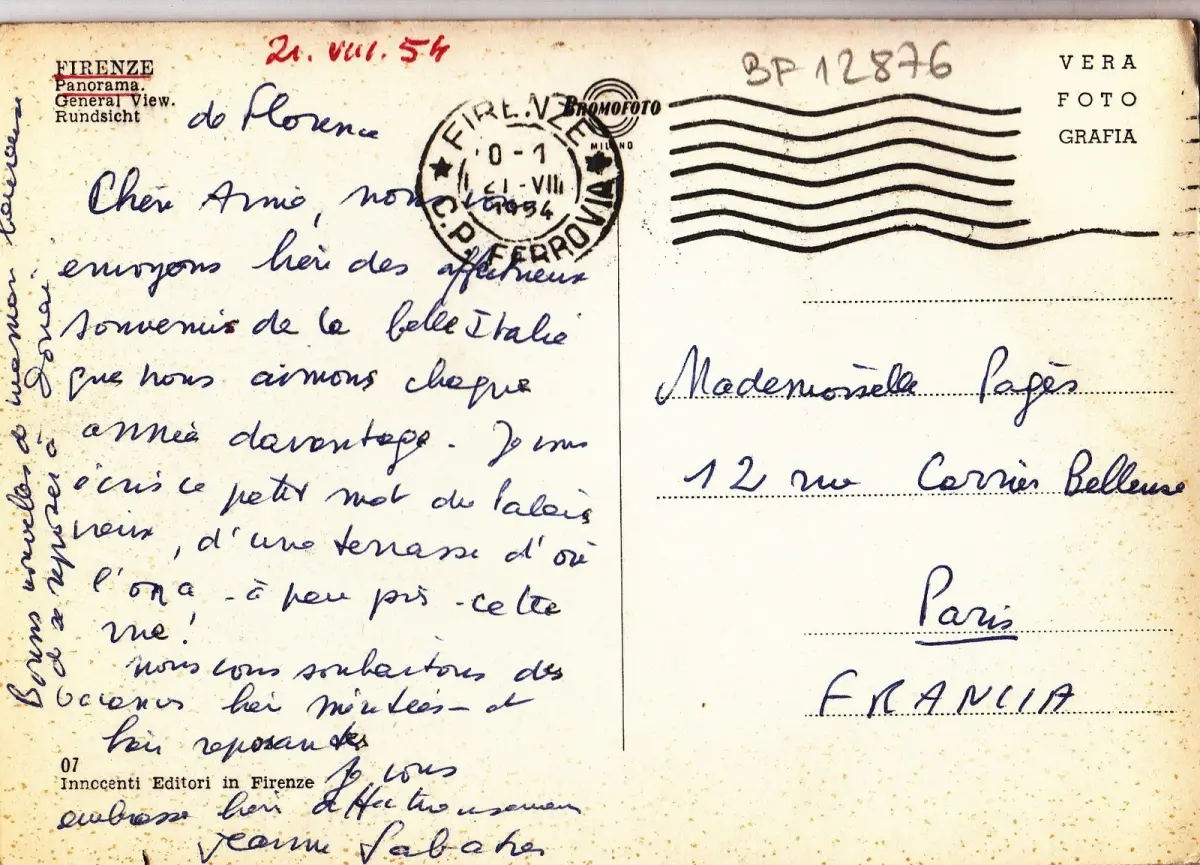 21. VIII. 54
BF 12876
FIRENZE
Panorama.
General View.
Rundsicht
BROMOFOTO
MILANO
VERA
FOTO
GRAFIA
FIRENZE
0-1
21-VIII
1954
C.P. FERROVIA
de Florence
Chère Amie, nous vous
envoyons bien des affectueux
souvenirs de la belle Italie
que nous aimons chaque
année davantage. Je vous
écris ce petit mot du Palais
vieux, d'une terrasse d'où
l'on a - à peu près - cette
vue!
Nous vous souhaitons des
vacances bien méritées - et
bien reposantes
Je vous
embrasse bien affectueusement
Jeanne Sabatier
Bonnes nouvelles de maman heureuse
de se reposer à
07
Innocenti Editori in Firenze
Mademoiselle Pagès
12 rue Carrier Belleuse
Paris
FRANCIA